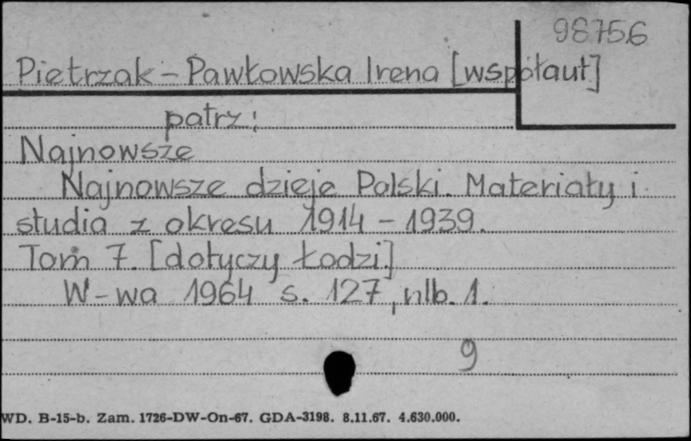 98756
Pietrzak - Pawłowska Irena [współaut]
patrz:
Najnowsze
Najnowsze dzieje Polski. Materiały i
studia z okresu 1914 - 1939.
Tom 7. [dotyczy Łodzi]
W-wa 1964 s. 127, nlb. 1.
9
WD. B-15-b. Zam. 1726-DW-On-67. GDA-3198. 8.11.67. 4.630.000.